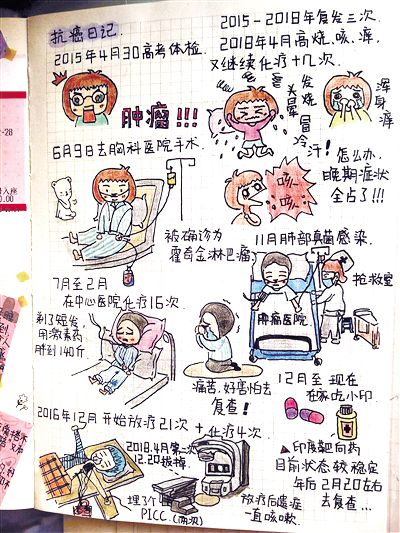 抗癌日记.
2015年4月30高考体检.
肿瘤!!!
6月9日去胸科医院手术.
被确诊为
霍奇金淋巴瘤
7月至2月
在中心医院化疗16次
剃了短发,
用激素药
胖到140斤.
痛苦.好害怕去
复查!
2016年12月开始放疗21次+化疗4次.
2018.4月第二次
2.20拔掉.
埋了个
PICC.(两次)
放疗后遗症
一直咳嗽.
2015-2018年复发三次.
2018年4月高烧、咳、痒,
又继续化疗十几次.
发烧
头晕
冒
冷汗!
浑
身
痒
咳
咳
怎么办,
晚期症状
全占了!!!
11月肺部真菌感染.
抢救室
肿瘤医院
12月至现在
在家吃小印.
印度靶向药
目前状态较稳定
年后2月20左右
去复查...